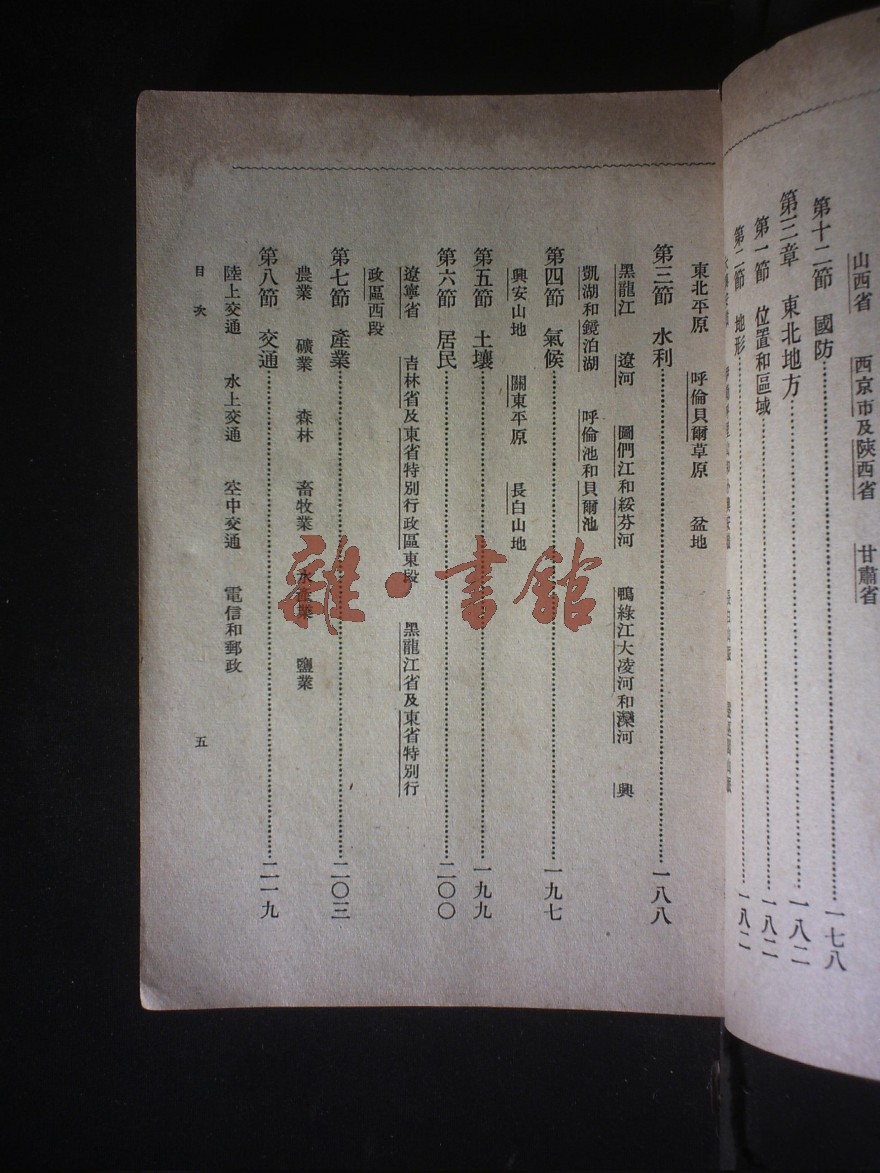 山西省　西京市及陝西省　甘肅省
第十二節　國防……一七八
第三章　東北地方……一八二
第一節　位置和區域……一八二
第二節　地形……一八二
東北平原　呼倫貝爾草原　盆地
第三節　水利……一八八
黑龍江　遼河　圖們江和綏芬河　鴨綠江大凌河和灤河　興
凱湖和鏡泊湖　呼倫池和貝爾池
第四節　氣候……一九七
興安山地　關東平原　長白山地
第五節　土壤……一九九
第六節　居民……二〇〇
遼寧省　吉林省及東省特別行政區東段　黑龍江省及東省特別行
政區西段
第七節　產業……二〇三
農業　礦業　森林　畜牧業　水產業　鹽業
第八節　交通……二一九
陸上交通　水上交通　空中交通　電信和郵政
目次
五
雜·書館